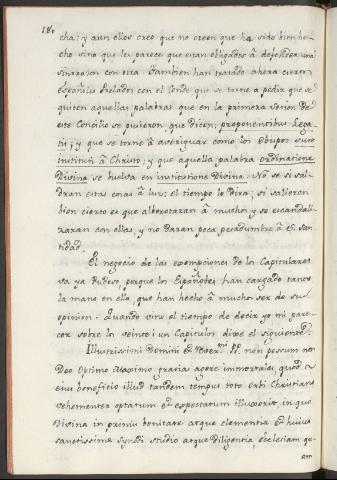 180
cha; y aun ellos creo que no creen que ha sido bien he-
cho sino que les parece que estan obligados â defender una
sinrazon con otra. Tambien han tratado ahora ciertos
españoles Prelados con el Conde que se torne a pedir que se
quiten aquellas palabras que en la primera sesion de
este Concilio se pusieron, que dicen; proponentibus Lega-
tis; y que se torne â averiguar como los Obispos sunt
instituti â Christo; y que aquella palabra ordinatione
Divina se buelva en institutione Divina. No se si sal-
dran estas cosas â luz; el tiempo lo dira; si salieren
bien cierto es que alborotaran â muchos y se escandali-
zaran con ellas, y no daran poca pesadumbre â S. San-
tidad.
El negocio de las exempciones de los Capitulares
va ya dudoso, porque los Españoles han cargado tanto
la mano en ello, que han hecho â muchos ser de su
opinion. Quando vino el tiempo de decir yo mi pare-
cer sobre los veinte i un Capitulos dixe el siguiente.
Illustrissimi Domini et Rever.mi PP. non possum non
Deo Optimo Maximo gratias agere immortales, quod
eius beneficio illud tandem tempus toti Orbi Christiano
vehementer optatum et expectatum illuxerit, in quo
Divina in primis bonitate atque clementia et huius
sanctissimæ Synodi studio atque diligencia, ecclesiam qu-
am